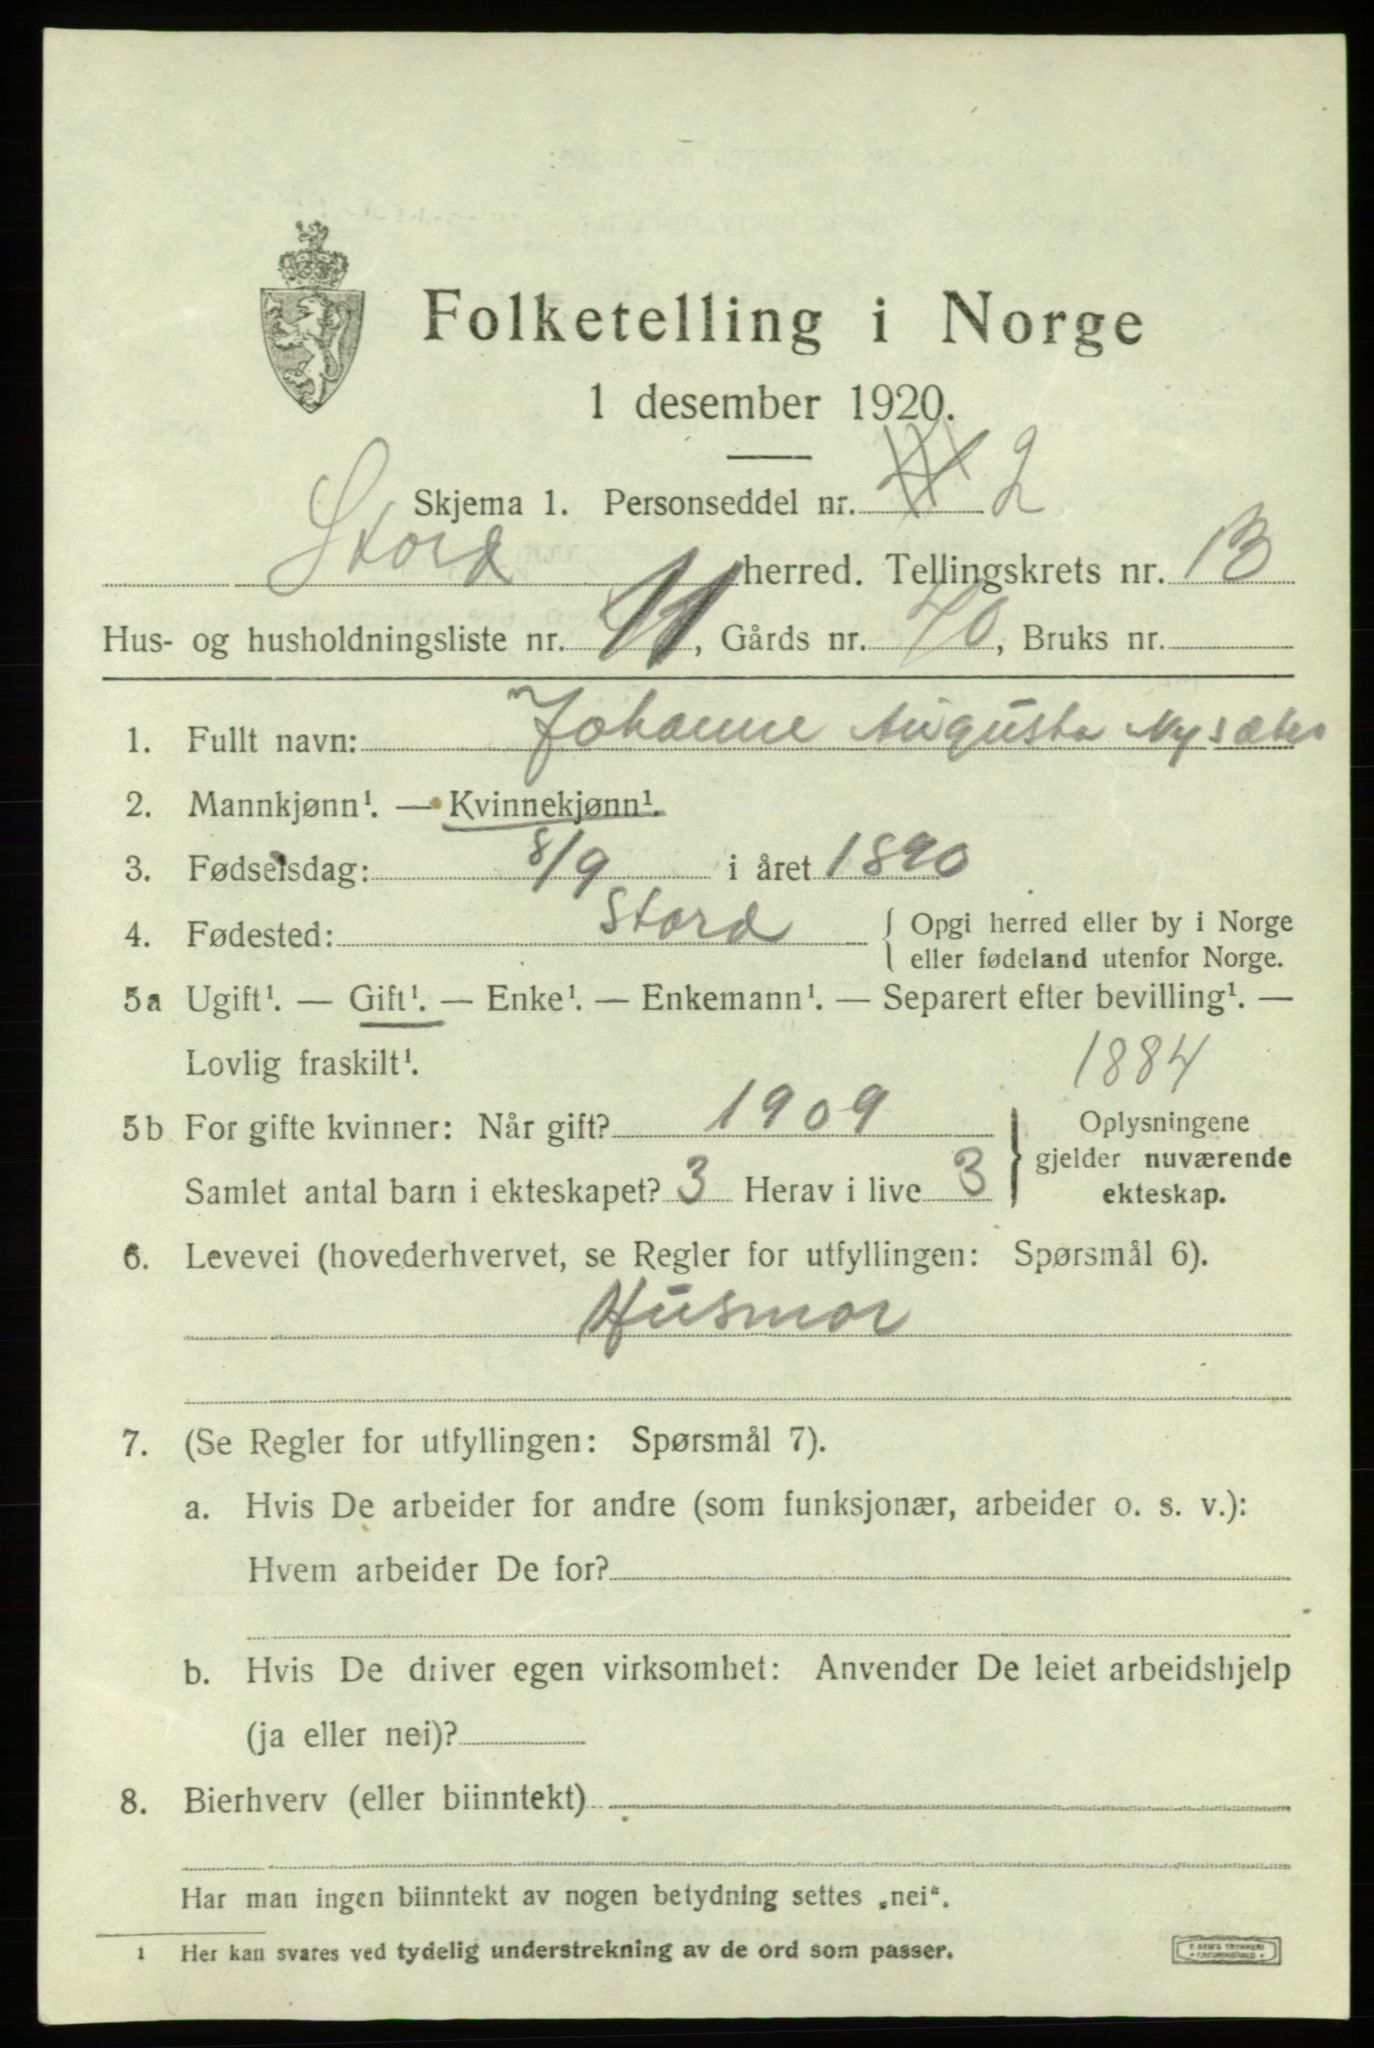 Folketelling i Norge
1 desember 1920.
Skjema 1. Personseddel nr. 2
Stord herred. Tellingskrets nr. 13
Hus- og husholdningsliste nr. 11, Gårds nr. 70, Bruks nr.
1. Fullt navn: Johanne Augusta Nysæter
2. Mannkjønn¹. — Kvinnekjønn¹.
3. Fødselsdag: 8/9 i året 1890
4. Fødested: Stord { Opgi herred eller by i Norge
eller fødeland utenfor Norge.
5a Ugift¹. — Gift¹. — Enke¹. — Enkemann¹. — Separert efter bevilling¹. —
Lovlig fraskilt¹.
1884
5b For gifte kvinner: Når gift? 1909
Samlet antal barn i ekteskapet? 3 Herav i live 3
} Oplysningene
gjelder nuværende
ekteskap.
6. Levevei (hovederhvervet, se Regler for utfyllingen: Spørsmål 6).
Husmor
7. (Se Regler for utfyllingen: Spørsmål 7).
a. Hvis De arbeider for andre (som funksjonær, arbeider o. s. v.):
Hvem arbeider De for?
b. Hvis De driver egen virksomhet: Anvender De leiet arbeidshjelp
(ja eller nei)?
8. Bierhverv (eller biinntekt)
Har man ingen biinntekt av nogen betydning settes „nei“.
1 Her kan svares ved tydelig understrekning av de ord som passer.